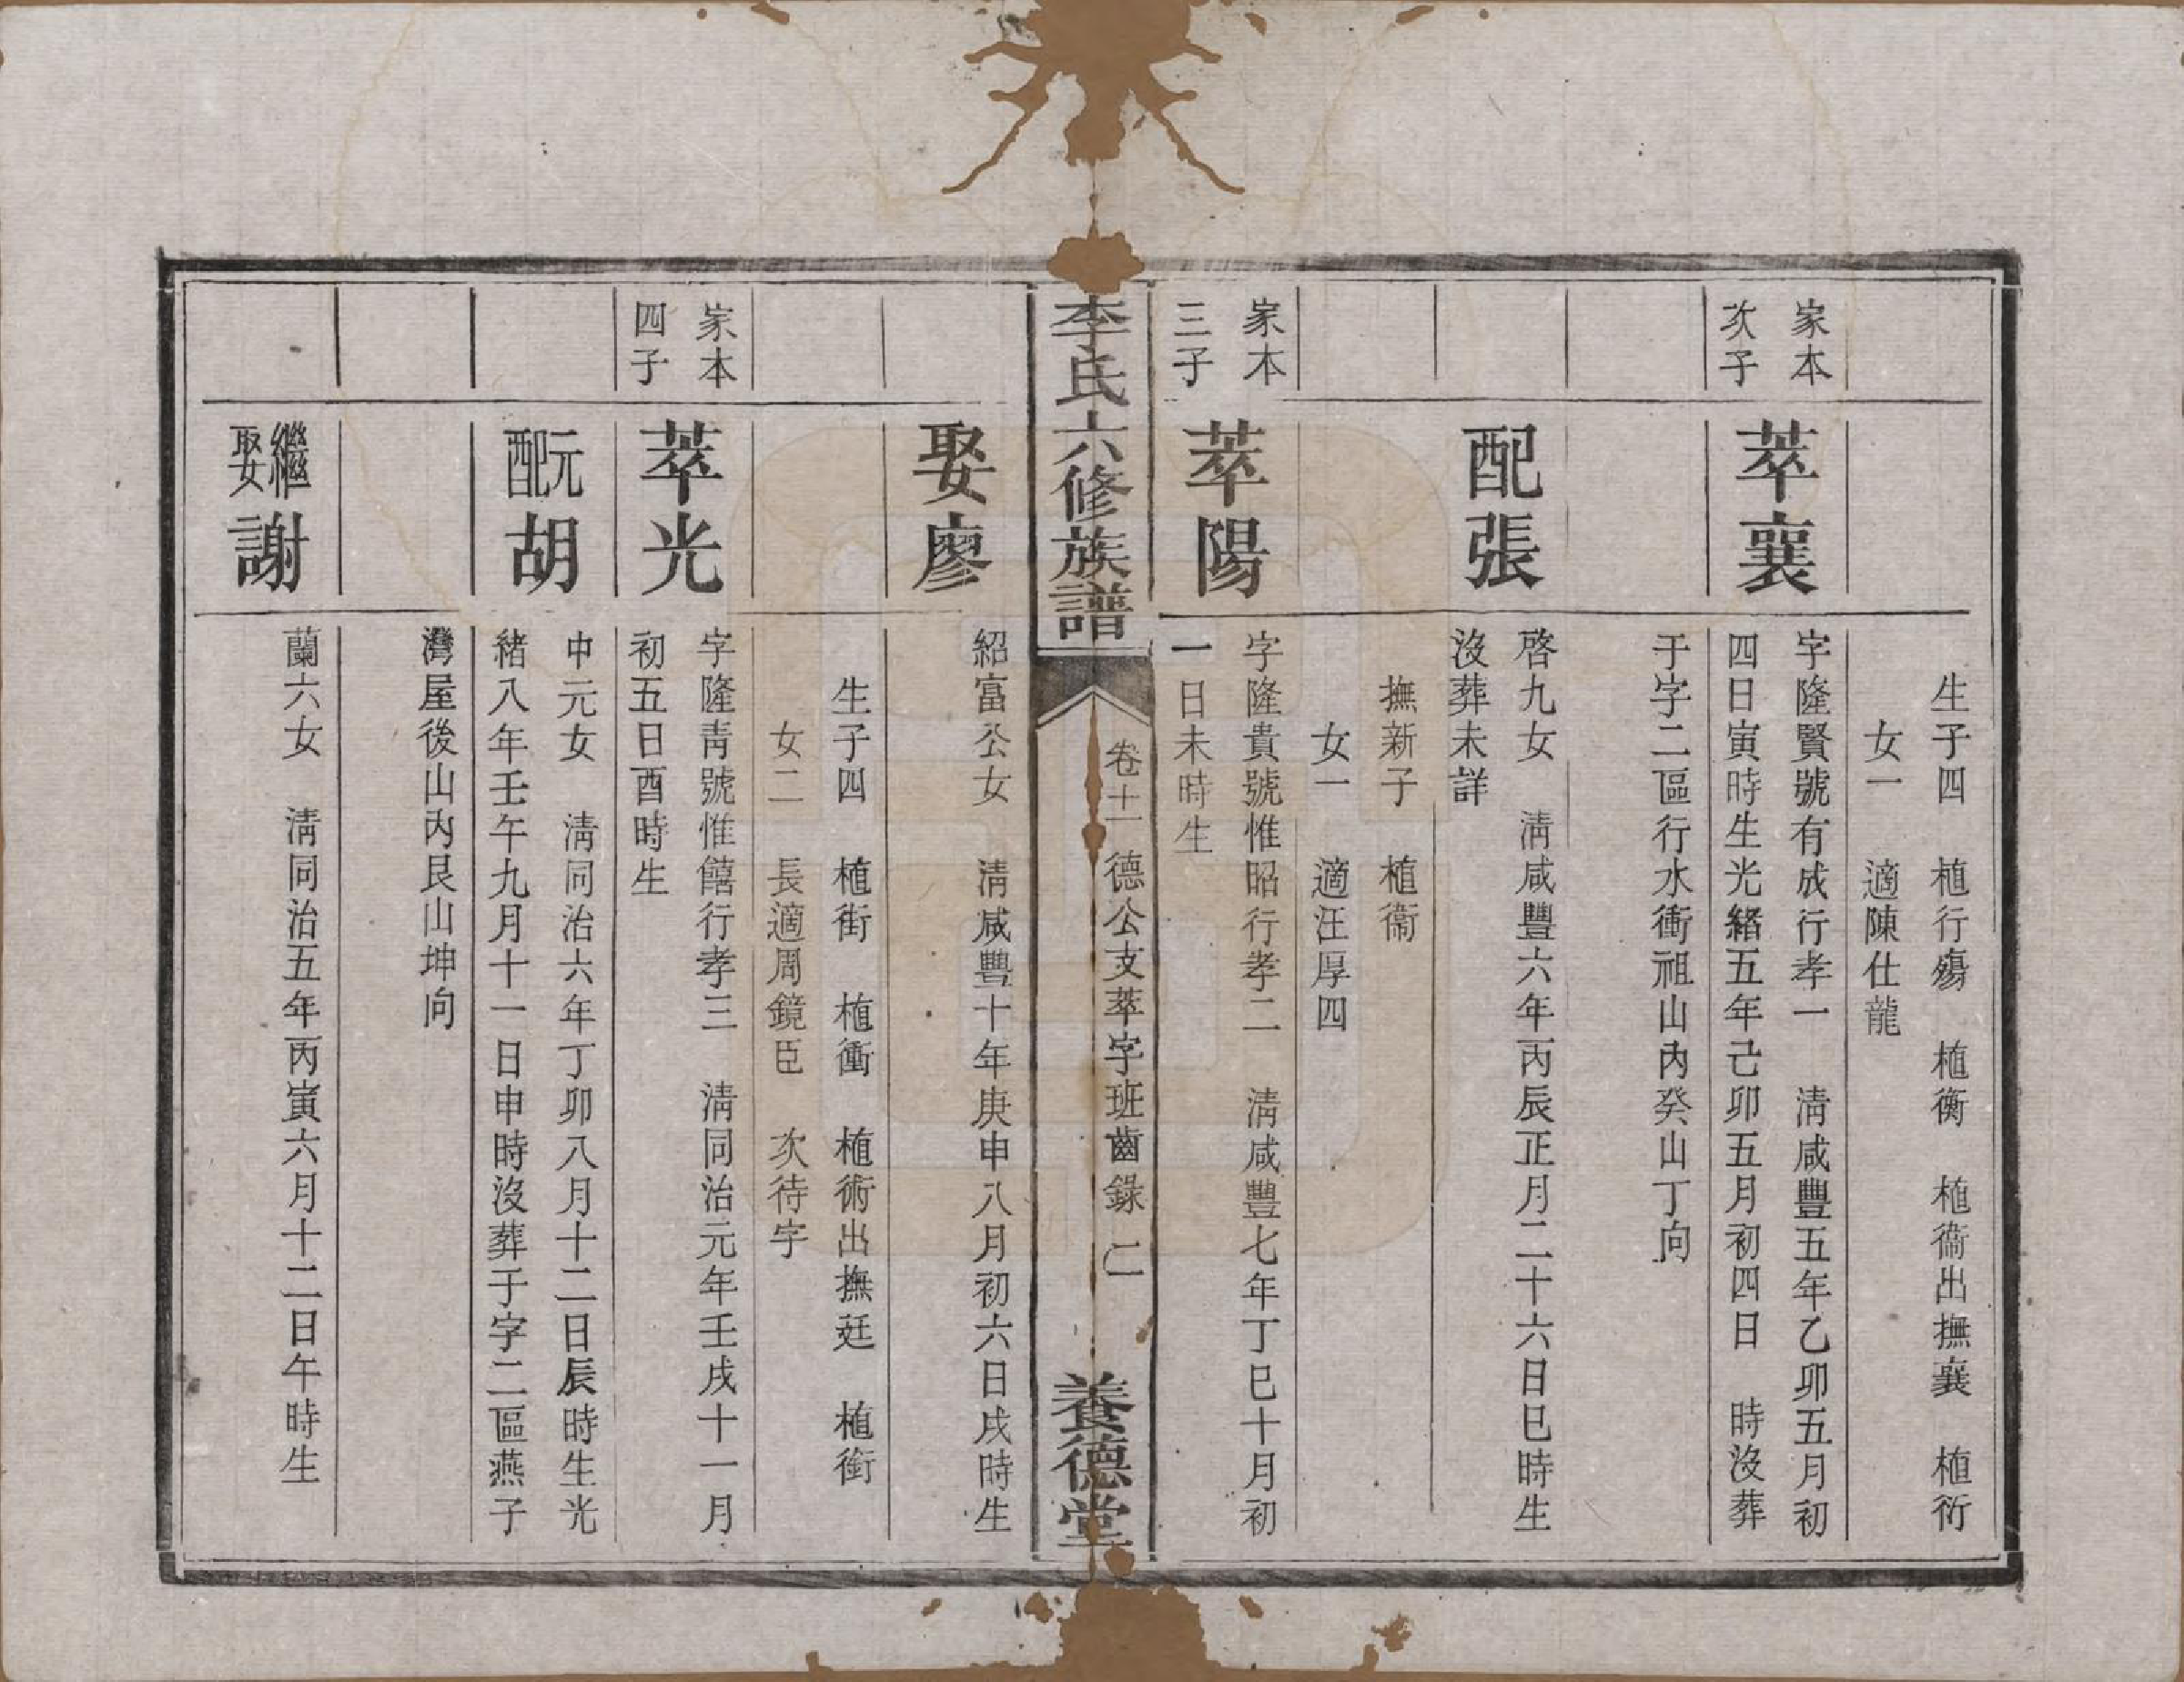 生子四　植行殤　植衡　植衞出撫襄　植衍
女一　適陳仕龍
家本
次子
萃襄
字隆賢號有成行孝一　清咸豐五年乙卯五月初
四日寅時生光緒五年己卯五月初四日　時沒葬
于字二區行水衝祖山內癸山丁向
配張
啓九女　清咸豐六年丙辰正月二十六日巳時生
沒葬未詳
撫新子　植衞
女一　適汪厚四
家本
三子
萃陽
字隆貴號惟昭行孝二　清咸豐七年丁巳十月初
一日未時生
李氏六修族譜
卷十一德公支萃字班齒錄　二
養德堂
娶廖
紹富公女　清咸豐十年庚申八月初六日戌時生
生子四　植街　植衝　植術出撫廷　植衛
女二　長適周鏡臣　次待字
家本
四子
萃光
字隆青號惟饎行孝三　清同治元年壬戌十一月
初五日酉時生
元配
胡
中元女　清同治六年丁卯八月十二日辰時生光
緒八年壬午九月十一日申時沒葬于字二區燕子
灣屋後山內艮山坤向
繼娶
謝
蘭六女　清同治五年丙寅六月十二日午時生